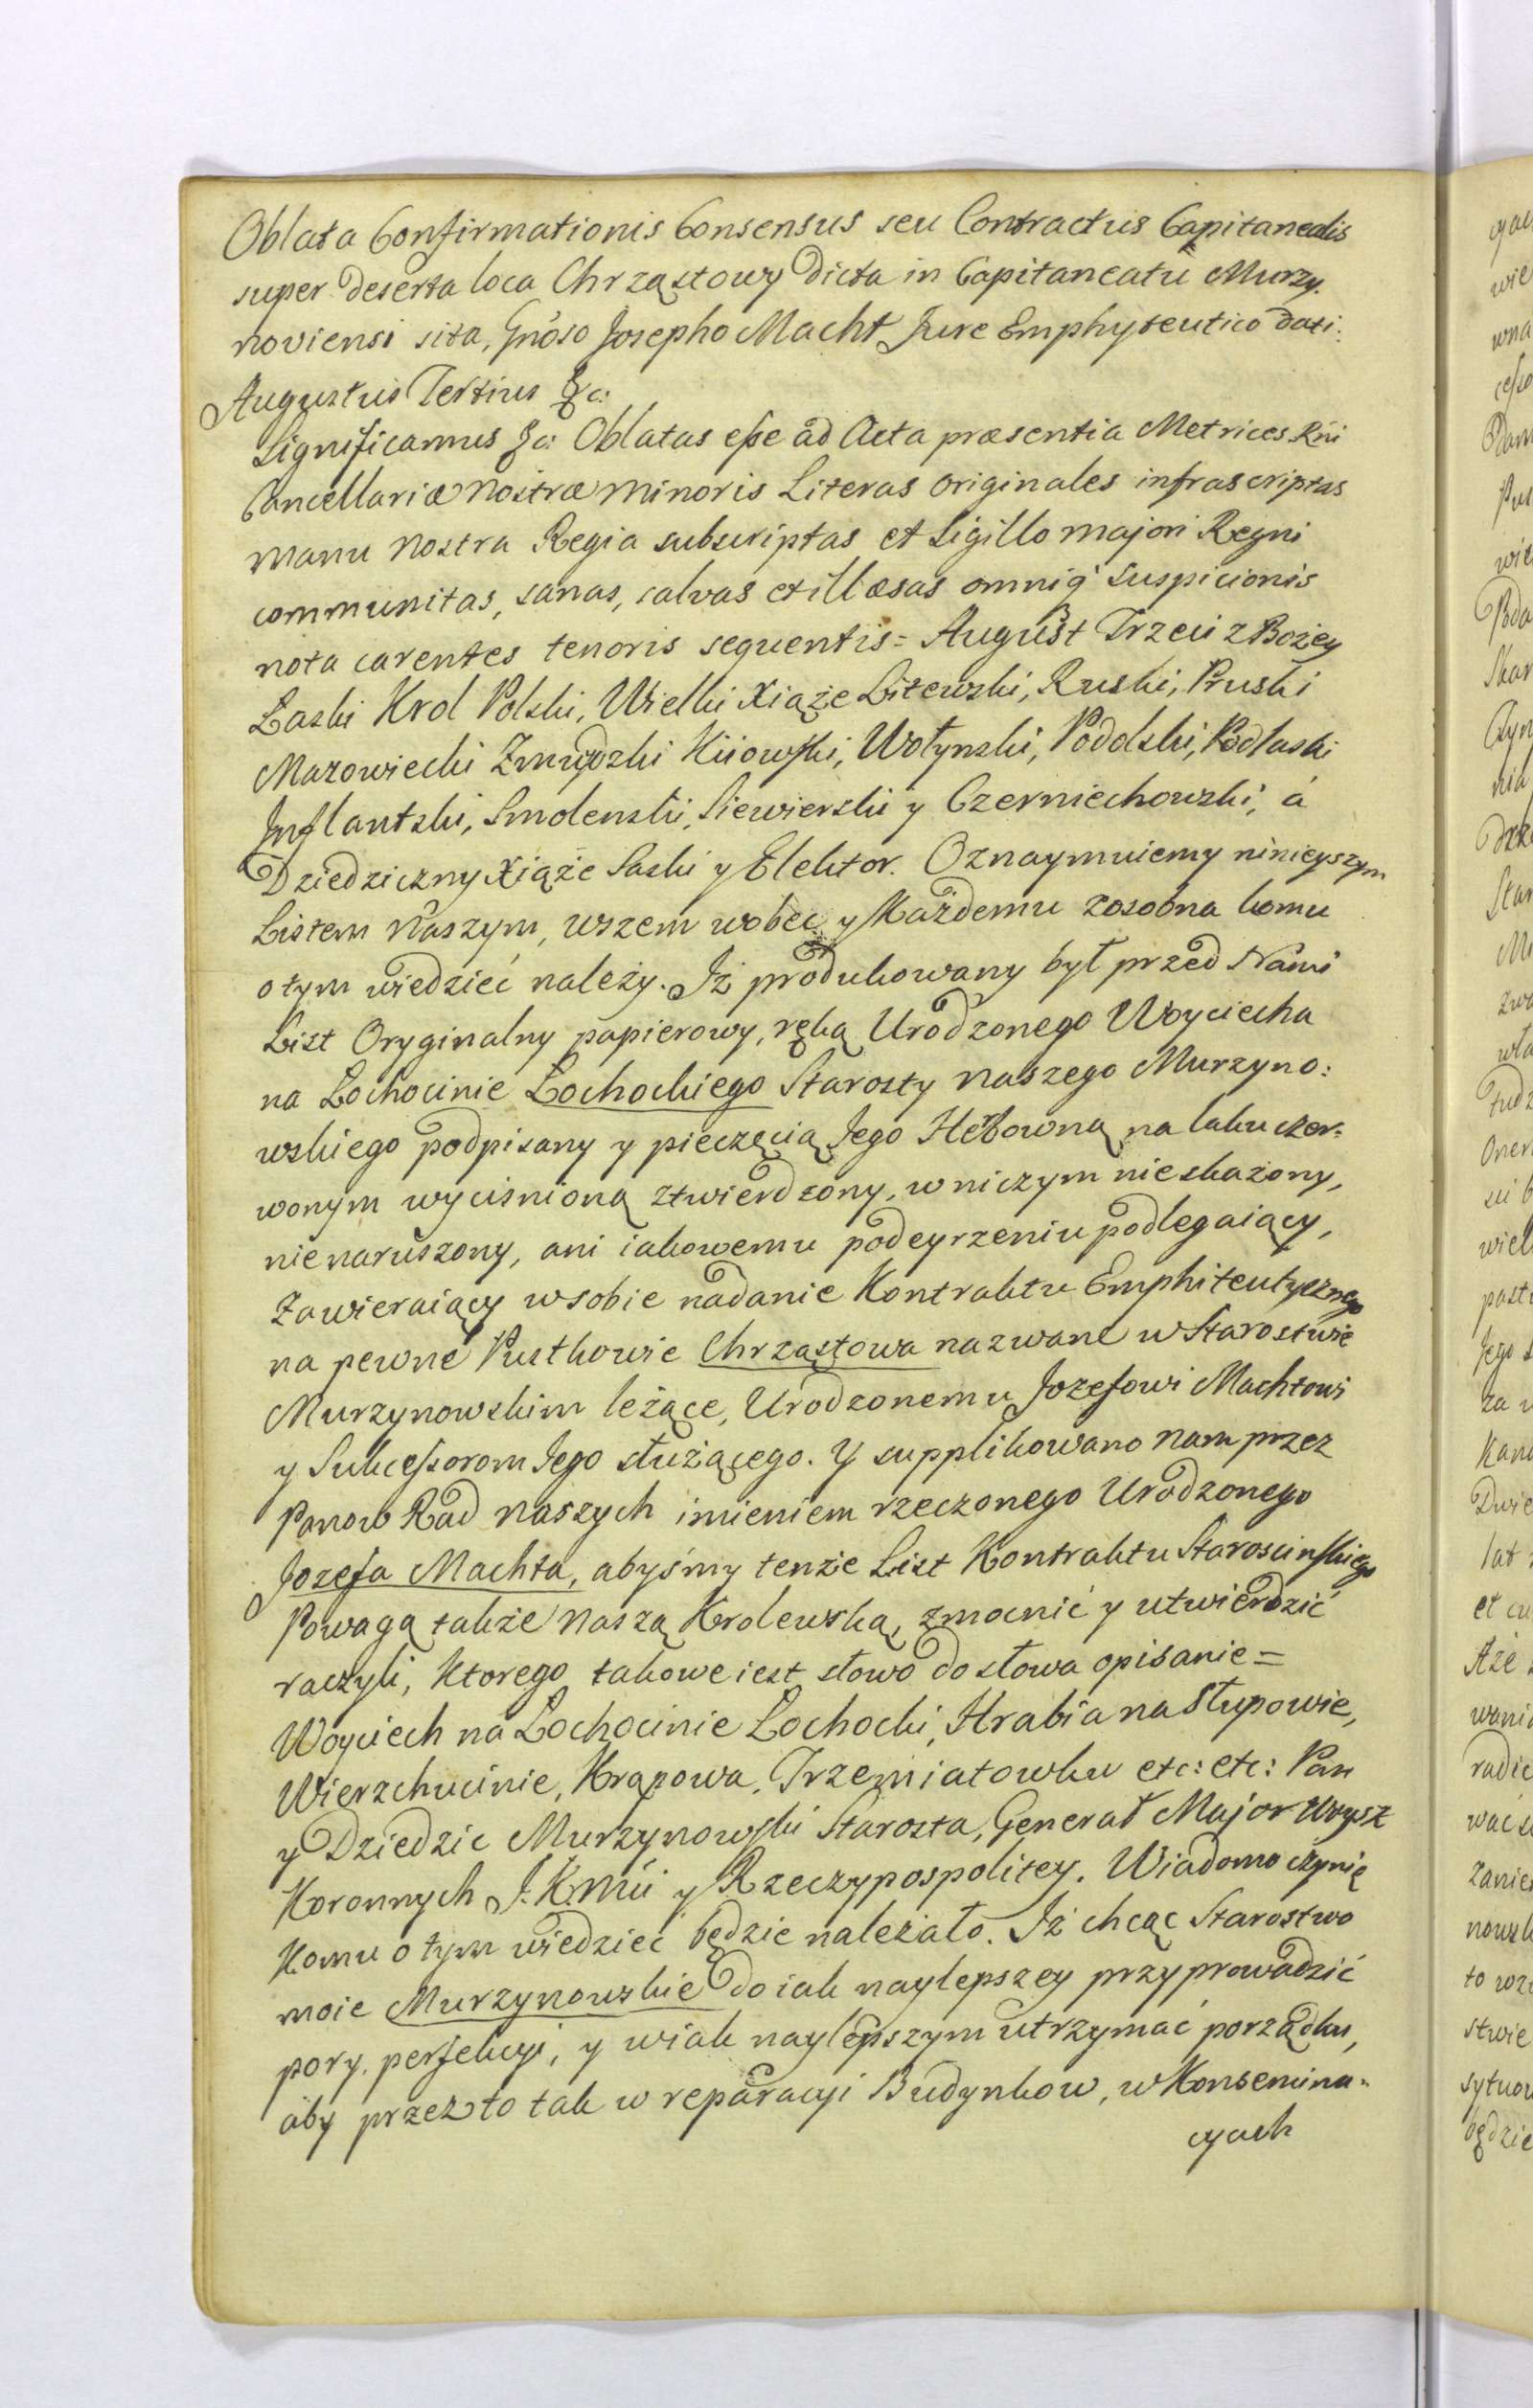 Oblata Confirmationis Consensus seu Contractus Capitanealis
super deserta loca Chrząstowy dicta in Capitaneatu Murzy.
noviensi sita, Gnoso Josepho Macht Jure Emphyteutico dati.
Augustus Tertius &c:
Significamus &c: Oblatas esse ad Acta præsentia Metrices Rni
Cancellariæ Nostræ Minoris Literas originales infrascriptas
manu Nostra Regia subscriptas et Sigillo majori Regni
communitas, sanas, salvas et illæsas omniq suspicionis
nota carentes tenoris sequentis = August Trzeci z Bożey
Łaski Krol Polski, Wielki Xiąże Litewski, Ruski, Pruski
Mazowiecki Zmudzki Kiiowski, Wołynski, Podolski, Podlaski
Inflantski, Smolenski, Siewierski y Czerniechowski, á
Dziedziczny Xiąże Saski y Elektor. Oznaymuiemy ninieyszym
Listem Naszym, wszem wobec y Każdemu zosobna komu
o tym wiedzieć należy. Iż produkowany był przed Nami
List Oryginalny papierowy, ręką Urodzonego Woyciecha
na Łochocinie Łochockiego Starosty Naszego Murzyno:
wskiego podpisany y pieczęcią Jego Herbowną na laku czer:
wonym wyciśnioną ztwierdzony, w niczym nieskażony,
nienaruszony, ani iakowemu podeyrzeniu podlegaiący,
Zawieraiący w sobie nadanie Kontraktu Emphiteutycznego
na pewne Pustkowie Chrząstowa nazwane w Starostwie
Murzynowskim leżące, Urodzonemu Jozefowi Machtowi
y Sukcessorom Jego służącego. Y supplikowano Nam przez
Panow Rad Naszych imieniem rzeczonego Urodzonego
Jozefa Machta, abyśmy tenże List Kontraktu Starościnskiego
Powagą także Naszą Krolewską, zmocnić y utwierdzić
raczyli, Ktorego takowe iest słowo do słowa opisanie =
Woyciech na Łochocinie Łochocki, Hrabia na Słupowie,
Wierzchucinie, Krąpowa, Trzemiatowku etc: etc: Pan
y Dziedzic Murzynowski Starosta, Generał Major Woysk
Koronnych J. K. Mci y Rzeczypospolitey. Wiadomo czynię
Komu o tym wiedzieć będzie należało. Iż chcąc Starostwo
moie Murzynowskie do iak naylepszey przyprowadzić
pory, perfekcyi, y w iak naylepszym utrzymać porządku,
aby przez to tak w reparacyi Budynkow, w Konsemina-
cyach